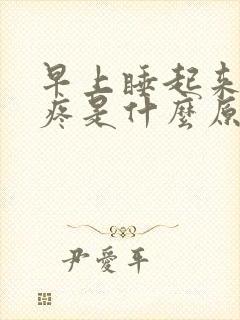 早上睡起来
疼是什麽原
尹愛平